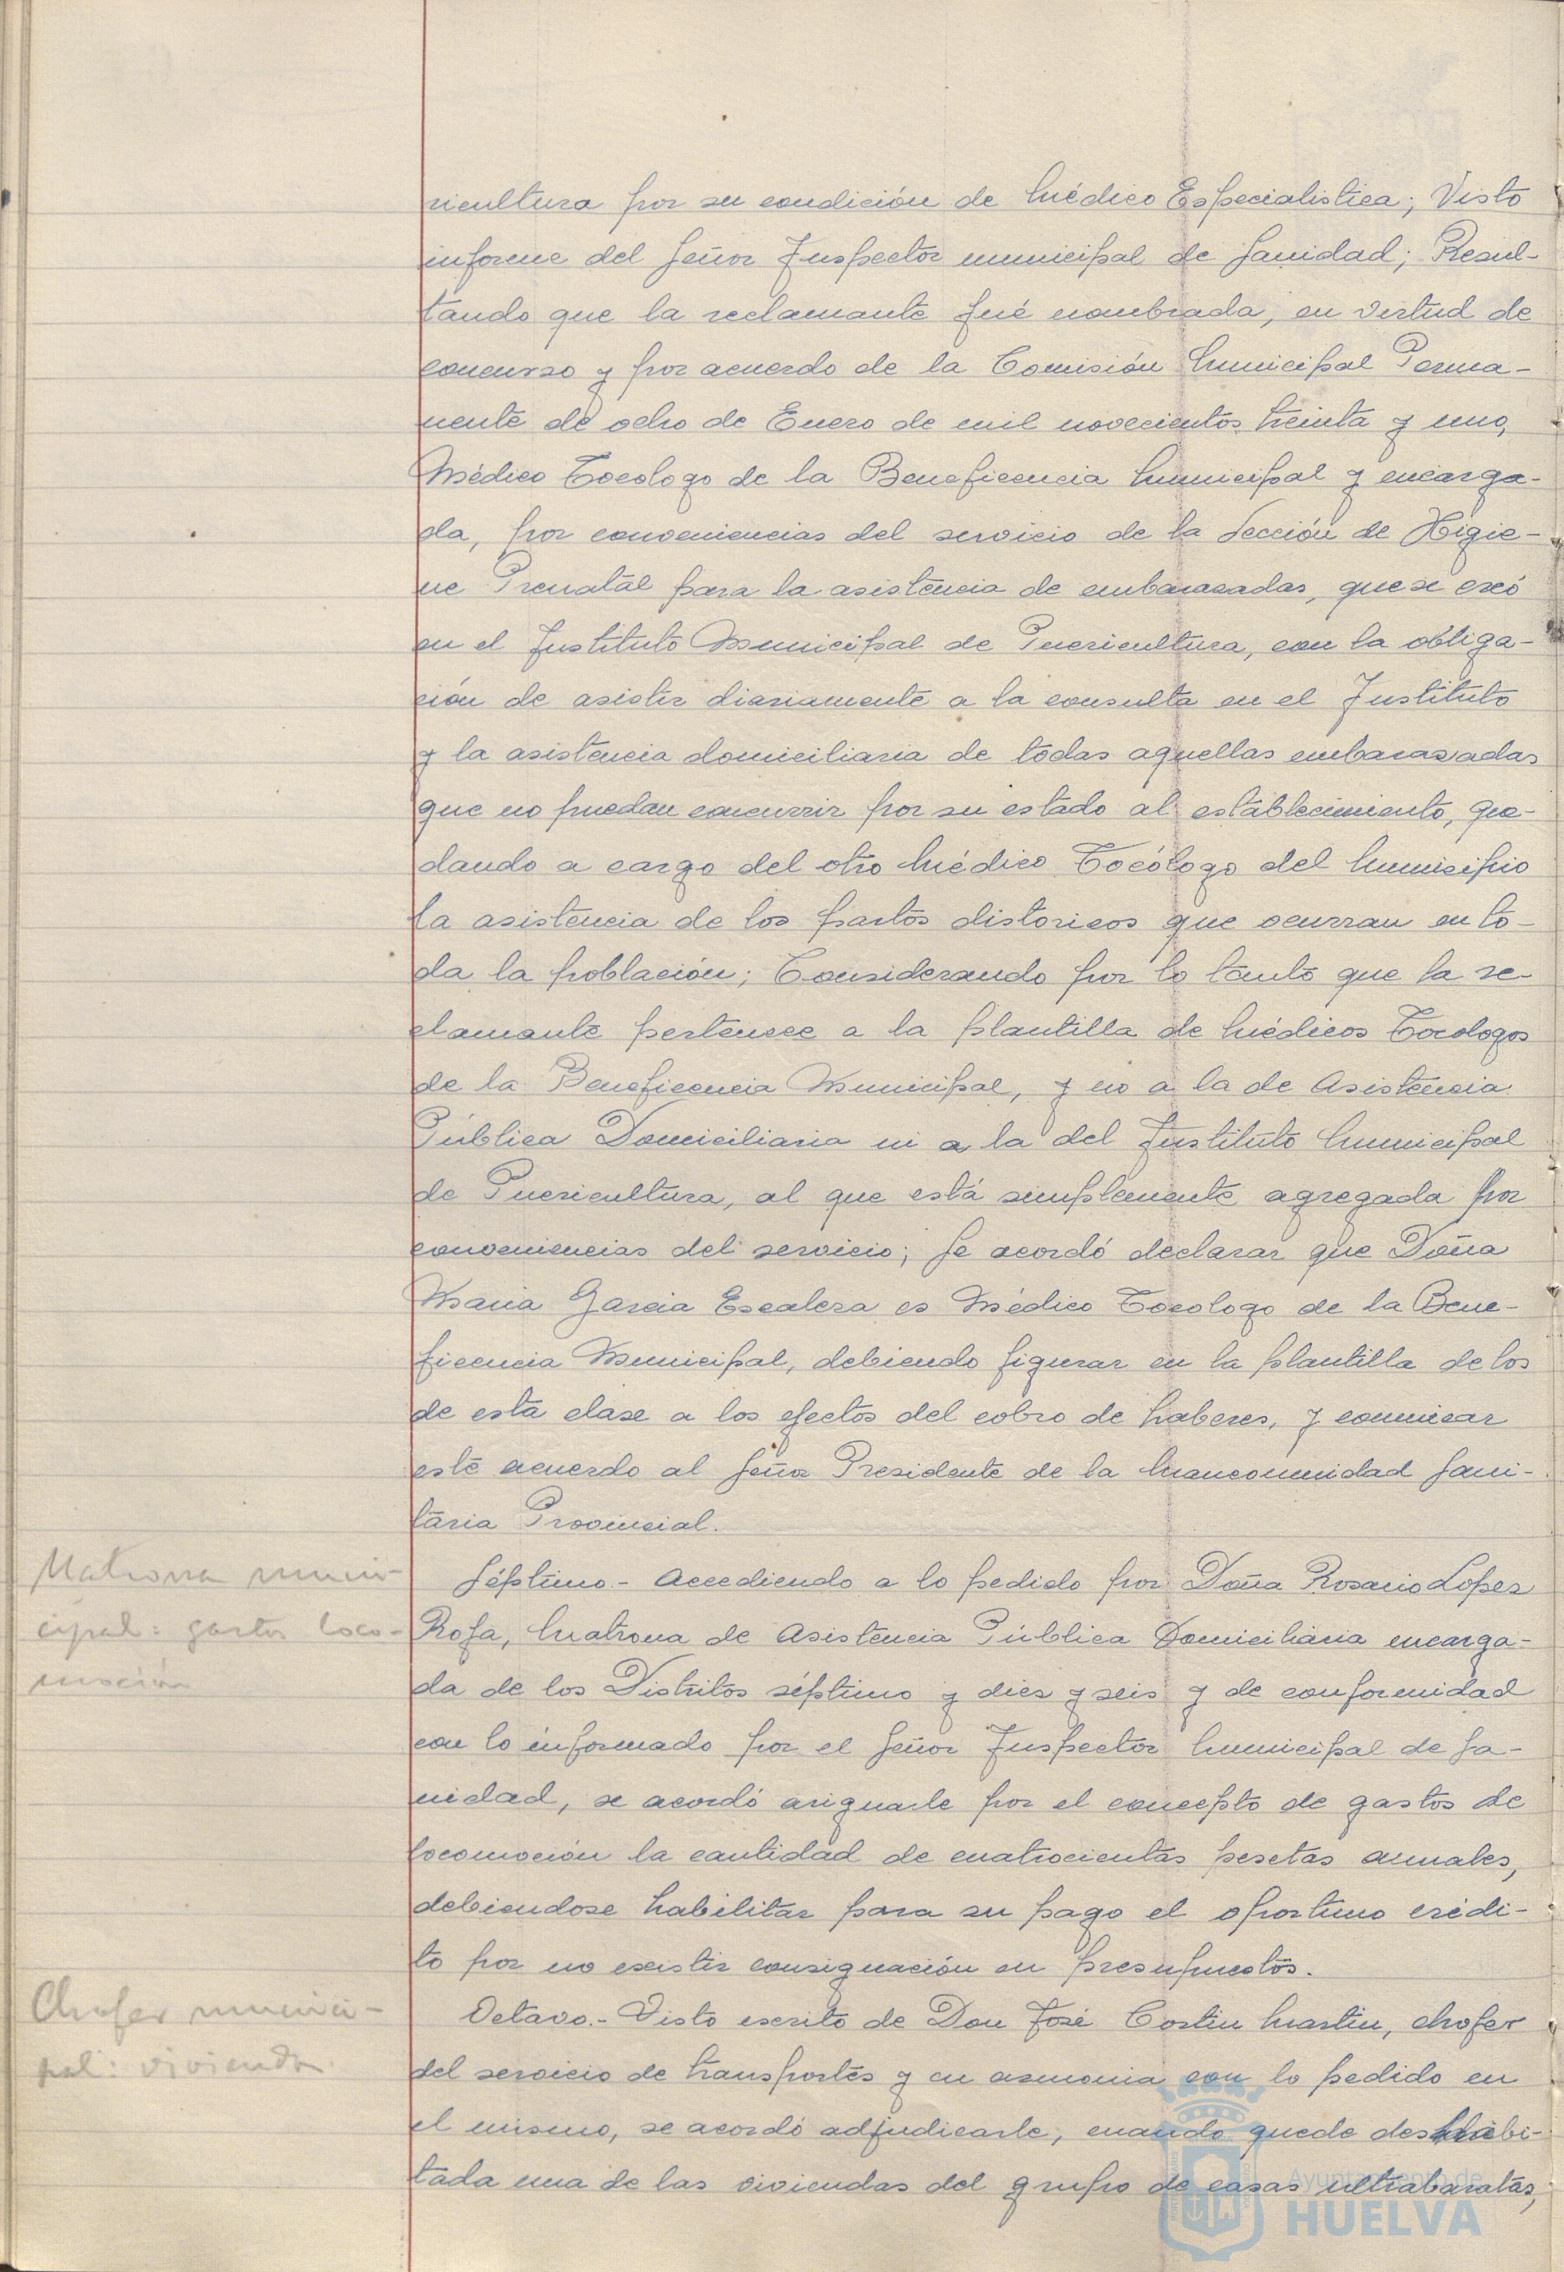 ricultura por su condición de Médico Especialistica; Visto
informe del Señor Inspector municipal de Sanidad; Resul-
tando que la reclamante fué nombrada, en virtud de
concurso y por acuerdo de la Comisión Municipal Perma-
nente de ocho de Enero de mil novecientos treinta y uno,
Médico Tocologo de la Beneficencia Municipal y encarga-
da, por conveniencias del servicio de la Sección de Higie-
ne Prenatal para la asistencia de embarasadas, que se creó
en el Instituto Municipal de Puericultura, con la obliga-
ción de asistir diariamente a la consulta en el Instituto
y la asistencia domiciliaria de todas aquellas embarazadas
que no puedan concurrir por su estado al establecimiento, que-
dando a cargo del otro Médico Tocólogo del Municipio
la asistencia de los partos distoricos que ocurran en to-
da la población; Considerando por lo tanto que la re-
clamante pertenece a la plantilla de Médicos Tocologos
de la Beneficencia Municipal, y no a la de Asistencia
Pública Domiciliaria ni a la del Instituto Municipal
de Puericultura, al que está simplemente agregada por
conveniencias del servicio; Se acordó declarar que Doña
Maria Garcia Escalera es Médico Tocologo de la Bene-
ficencia Municipal, debiendo figurar en la plantilla de los
de esta clase a los efectos del cobro de haberes, y comunicar
este acuerdo al Señor Presidente de la Mancomunidad Sani-
taria Provincial.
Matrona muni-
cipal: gastos loco-
moción
Séptimo.- Accediendo a lo pedido por Doña Rosario López
Rofa, Matrona de Asistencia Pública Domiciliaria encarga-
da de los Distritos séptimo y diez y seis y de conformidad
con lo informado por el Señor Inspector Municipal de Sa-
nidad, se acordó asignarle por el concepto de gastos de
locomoción la cantidad de cuatrocientas pesetas anuales,
debiendose habilitar para su pago el oportuno crédi-
to por no existir consignación en presupuestos.
Chofer munici-
pal: vivienda.
Octavo.- Visto escrito de Don José Costin Martin, chofer
del servicio de transportes y en armonia con lo pedido en
el mismo, se acordó adjudicarle, cuando quede deshabi-
tada una de las viviendas del grupo de casas ultrabaratas,
Ayuntamiento de
HUELVA